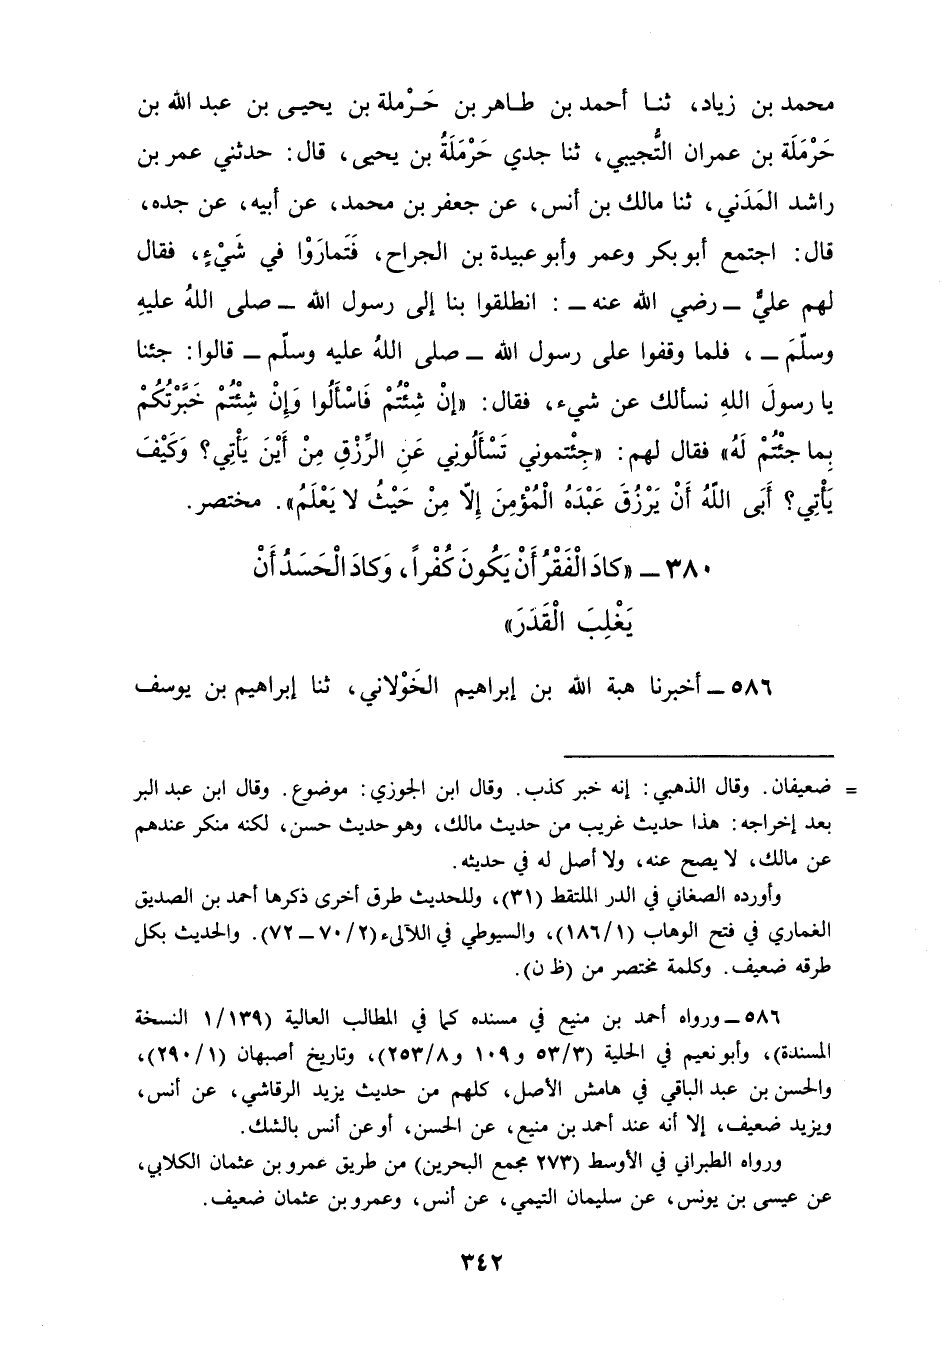 محمد بن زياد، ثنا أحمد بن طاهر بن حَرْملة بن يحيى بن عبد الله بن
حَرْمَلَة بن عمران التُّجيبي، ثنا جدي حَرْمَلَةُ بن يحيى، قال: حدثني عمر بن
راشد المَدَني، ثنا مالك بن أنس، عن جعفر بن محمد، عن أبيه، عن جده،
قال: اجتمع أبو بكر وعمر وأبو عبيدة بن الجراح، فَتَمارَوْا في شَيْءٍ، فقال
لهم عليٌّ ــ رضي الله عنه ــ: انطلقوا بنا إلى رسول الله ــ صلى اللهُ عليهِ
وسلّمَ ــ، فلما وقفوا على رسول الله ــ صلى اللهُ عليه وسلّم ــ قالوا: جئنا
يا رسولَ اللهِ نسألك عن شيء، فقال: «إنْ شِئْتُمْ فَاسْأَلُوا وَإِنْ شِئْتُمْ خَبَّرْتُكُمْ
بِما جئْتُمْ لَهُ» فقال لهم: «جِئْتموني تَسْأَلُونِي عَنِ الرِّزْقِ مِنْ أَيْنَ يَأْتِي؟ وَكَيْفَ
يَأْتِي؟ أَبَى اللّهُ أَنْ يَرْزُقَ عَبْدَهُ الْمُؤْمِنَ إِلّا مِنْ حَيْثُ لا يَعْلَمُ». مختصر.
٣٨٠ ــ «كادَ الْفَقْرُ أَنْ يَكُونَ كُفْراً، وَكادَ الْحَسَدُ أَنْ
يَغْلِبَ الْقَدَرَ»
٥٨٦ ــ أخبرنا هبة الله بن إبراهيم الخَوْلاني، ثنا إبراهيم بن يوسف
= ضعيفان. وقال الذهبي: إنه خبر كذب. وقال ابن الجوزي: موضوع. وقال ابن عبد البر
بعد إخراجه: هذا حديث غريب من حديث مالك، وهو حديث حسن، لكنه منكر عندهم
عن مالك، لا يصح عنه، ولا أصل له في حديثه.
وأورده الصغاني في الدر الملتقط (٣١)، وللحديث طرق أخرى ذكرها أحمد بن الصديق
الغماري في فتح الوهاب (١/١٨٦)، والسيوطي في اللآلىء (٢/٧٠ ــ ٧٢). والحديث بكل
طرقه ضعيف. وكلمة مختصر من (ظ ن).
٥٨٦ ــ ورواه أحمد بن منيع في مسنده كما في المطالب العالية (١/١٣٩ النسخة
المسندة)، وأبو نعيم في الحلية (٣/٥٣ و ١٠٩ و ٨/٢٥٣)، وتاريخ أصبهان (١/٢٩٠)،
والحسن بن عبد الباقي في هامش الأصل، كلهم من حديث يزيد الرقاشي، عن أنس،
ويزيد ضعيف، إلا أنه عند أحمد بن منيع، عن الحسن، أو عن أنس بالشك.
ورواه الطبراني في الأوسط (٢٧٣ مجمع البحرين) من طريق عمرو بن عثمان الكلابي،
عن عيسى بن يونس، عن سليمان التيمي، عن أنس، وعمرو بن عثمان ضعيف.
٣٤٢